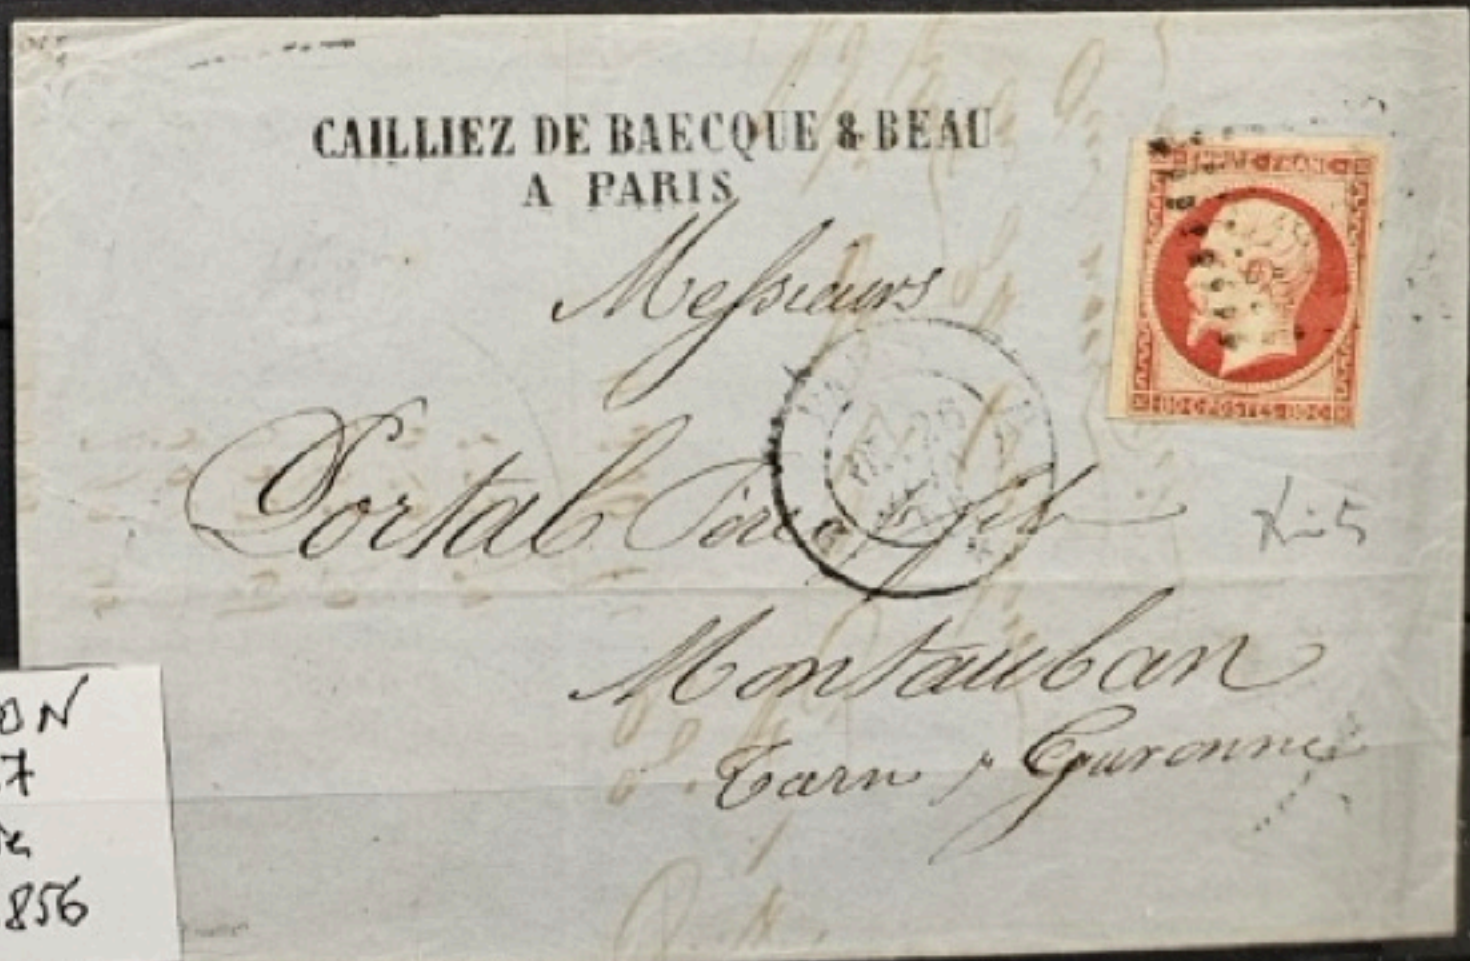 CAILLIEZ DE BAECQUE & BEAU
A PARIS
EMPIRE FRANC
80·C·POSTES·80·C
Messieurs
Portal Père & fils
Montauban
Tarn & Garonne
ON
7
856